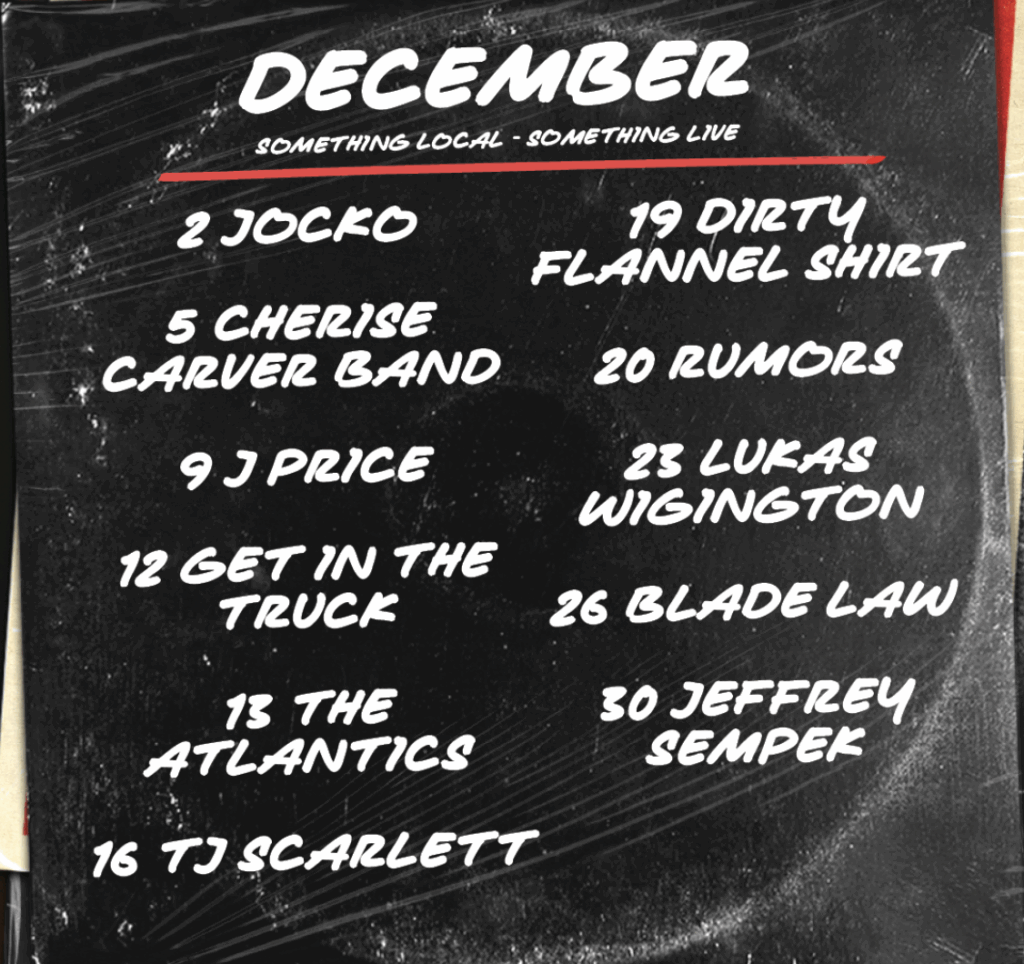 DECEMBER
SOMETHING LOCAL - SOMETHING LIVE
2 JOCKO
5 CHERISE
CARVER BAND
9 J PRICE
12 GET IN THE
TRUCK
13 THE
ATLANTICS
16 TJ SCARLETT
19 DIRTY
FLANNEL SHIRT
20 RUMORS
23 LUKAS
WIGINGTON
26 BLADE LAW
30 JEFFREY
SEMPEK